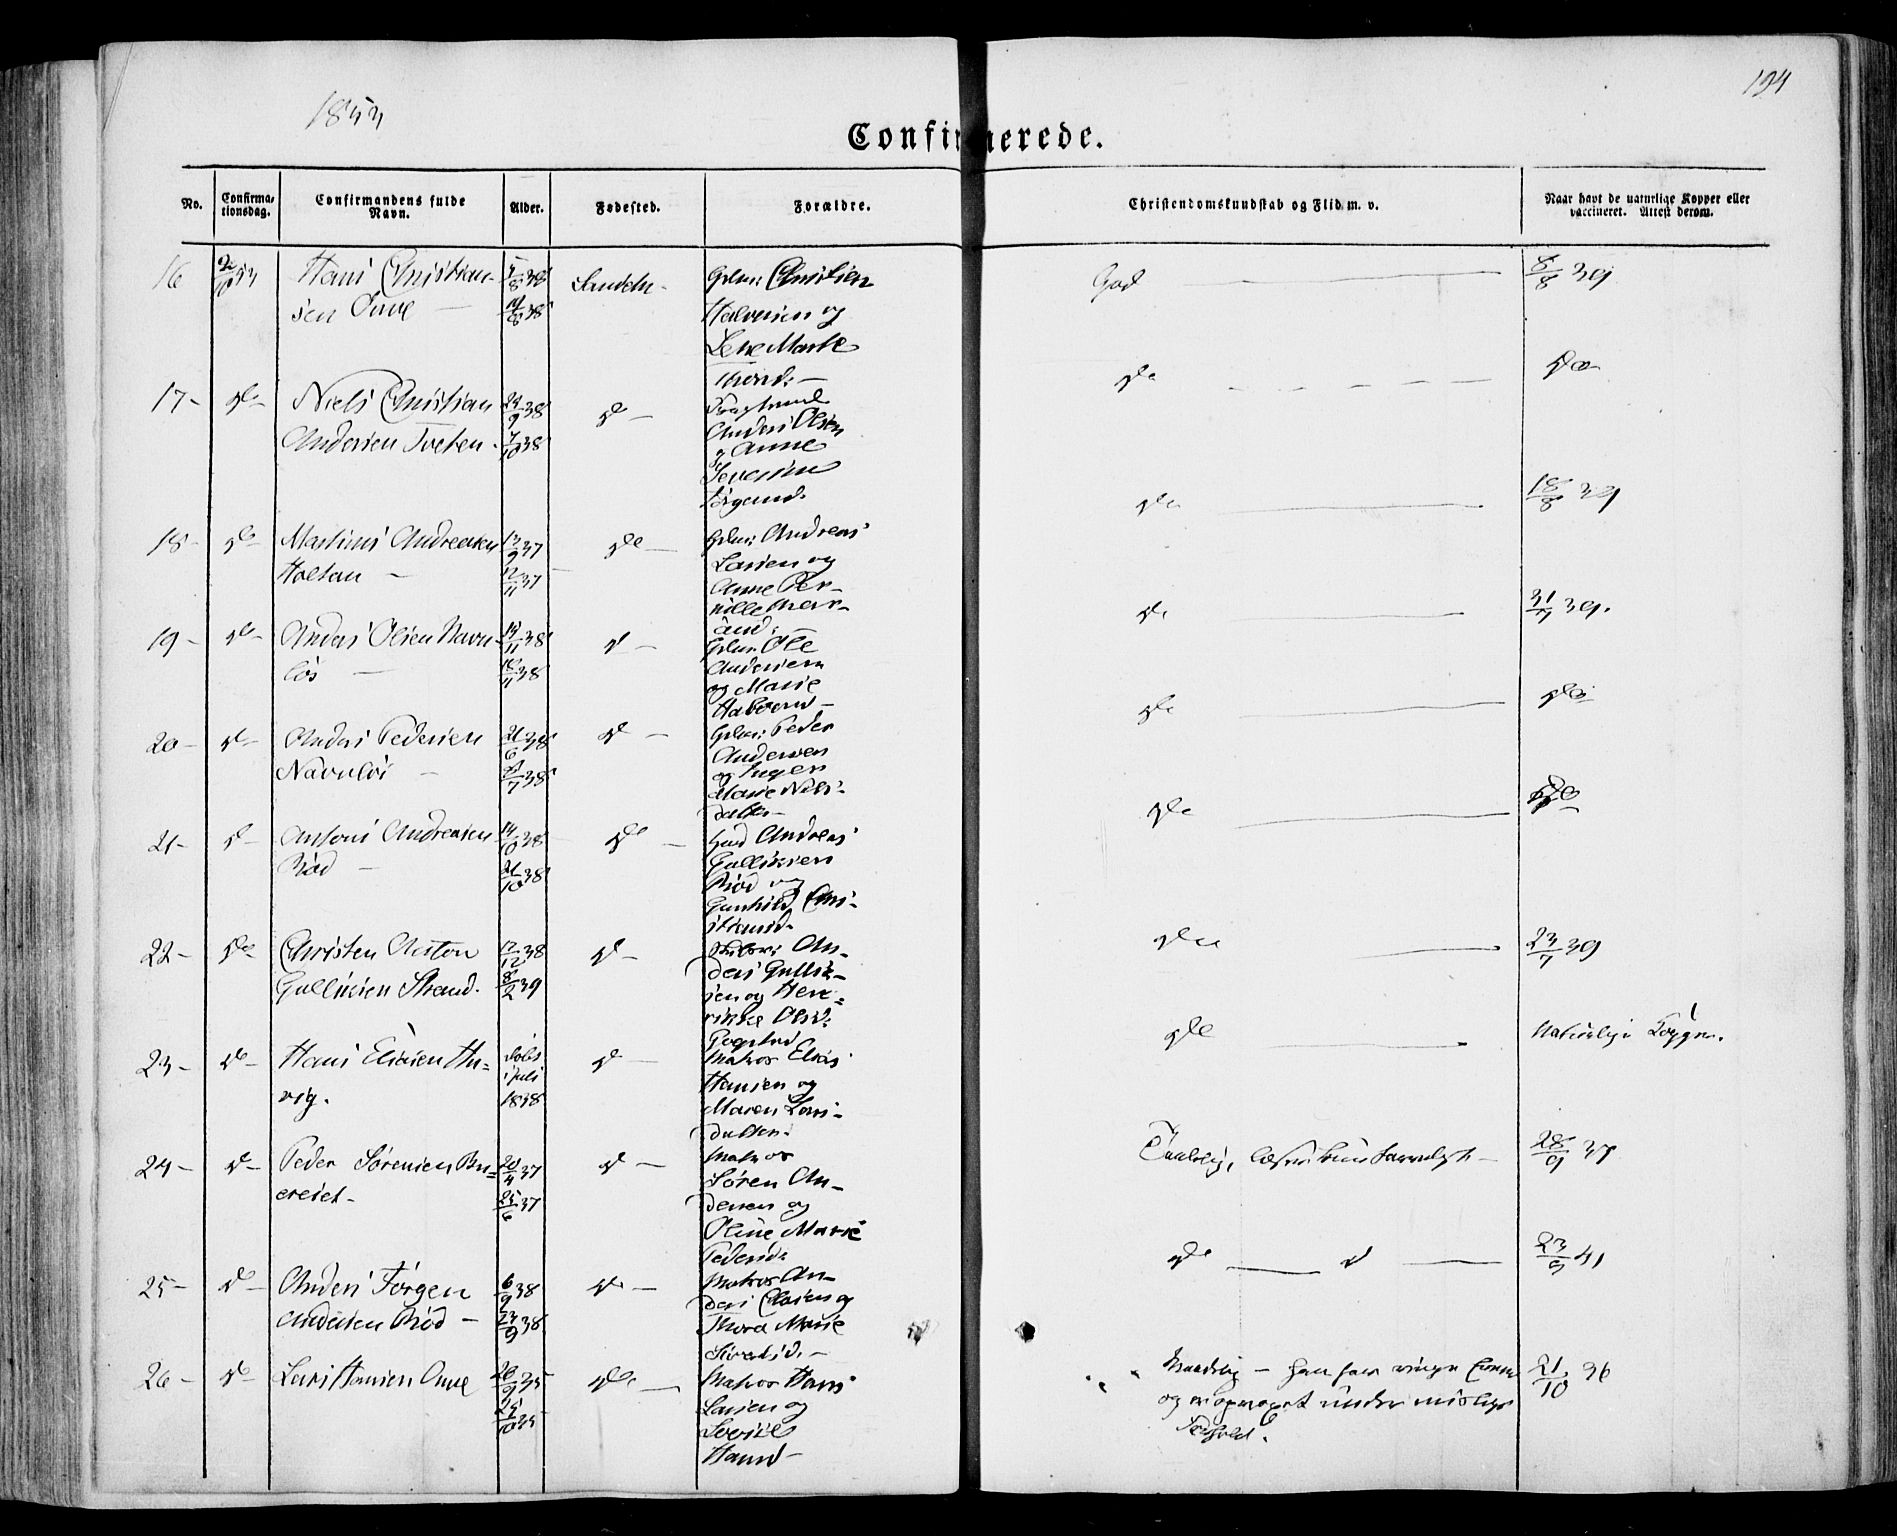 1853
194
Confirmerede.
No.
Confirma-
tionsdag.
Confirmandens fulde
Navn.
Alder.
Fødested.
Forældre.
Christendomskundskab og Flid m. v.
Naar havt de naturlige Kopper eller
vaccineret. Attest derom.
16 2/10 53 Hans Christian- 5/8 38 Sandeh. Gdm: Christian God 8/8 39
sen Omre 19/8 38 Halvorsen og
Lene Marie
Thorsd:
17- do- Niels Christian 24/9 38 do- do do
Andersen Tveten. 7/10 38 Anders Olsen
og Anne
Severine
Jørgensd.
18- do- Martinus Andreasen 13/9 37 do- Gdm: Andreas do 18/8 39
Holtan - 12/11 37 Larsen og
Anne Per-
nille
19- do- Anders Olsen Navn- 14/11 38 d- Gdm: Ole do 31/7 39.
løs - 18/11 38 Andersen
og Marie
20- do- Anders Pedersen 21/6 38 d- Gdm: Peder do do
Navnløs - 8/7 38 Andersen
og Inger
Marie Niels-
datter-
21- d- Antoni Andreasen 14/10 38 do- Andreas do do
Rød - 21/10 38 Gulliksen
Rød og
Gunhild Chri-
stiansd.
22- do- Christen Anton 12/12 38 d- An- do 23/7 39
Gulliksen Strand. 8/2 39 ders Gullik-
sen og Hen-
rikke Olsd:
23- do- Hans Eliasen Hu- Døbt do- Matros Elias do Naturlige Kopper.
vig. i Juli Hansen og
1838 Maren Lars-
datter.
24- d- Peder Sørensen Bu- 20/4 37 d- Matros 28/9 37
ereiet- 25/6 37 Søren An-
dersen og
Oline Marie
Pedersd:
25- d- Anders Jørgen 6/9 38 do- Matros An- do d 23/9 41
Andersen Rød - 23/9 38 ders Olsen og
Thora Marie
Sivertsd. -
26- do- Lars Hansen Omre 26/9 35 do- Matros Hans Maadelig - han har ringe Evner 21/10 36
25/10 35 Larsen og og er opvoxet under mislige
Sørine Forhold.
Hansd-